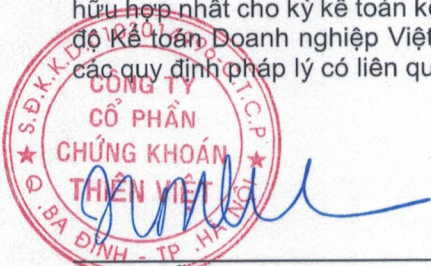 hữu hợp nhất cho kỳ kế toán k
độ Kế toán Doanh nghiệp Việt
các quy định pháp lý có liên qu
S.Đ.K.K.D
C.T.C.P
CÔNG TY
CỔ PHẦN
CHỨNG KHOÁN
THIÊN VIỆT
Q.BA ĐÌNH - TP.HÀ NỘI